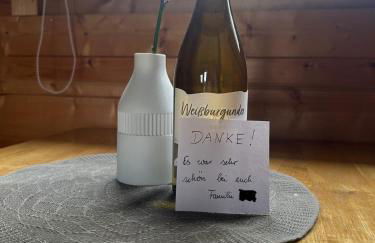 Weißburgunder
DANKE!
Es war sehr
schön bei euch
Familie